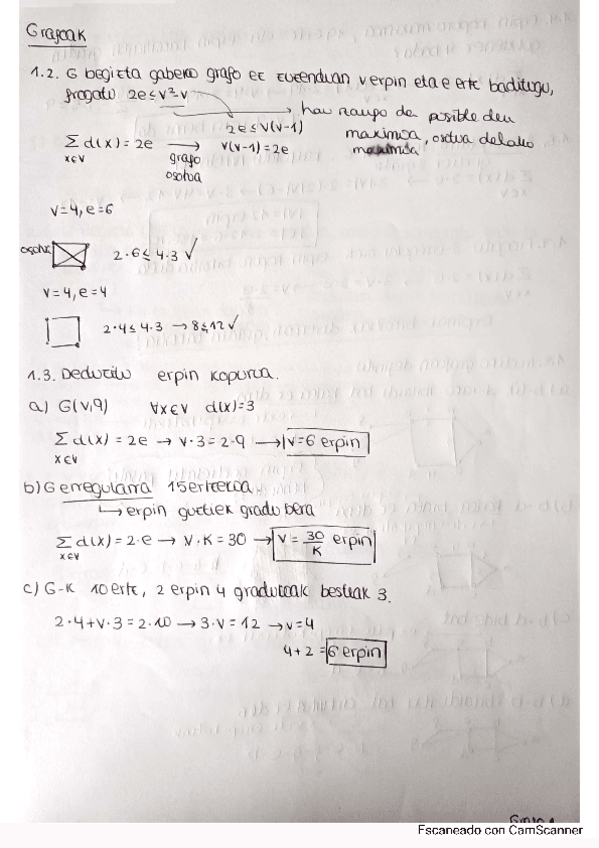 Grafoak
1.2. G begizta gabeko grafo ez zuzenduan v erpin eta e ertz baditugu,
frogatu 2e ≤ v²-v
hau izango da posible den
maximoa, osotua delako
2e ≤ v(v-1)
Σ d(x) = 2e → v(v-1) = 2e
x∈V
grafo
osotua
v=4, e=6
osotua
2·6 ≤ 4·3 ✓
v=4, e=4
2·4 ≤ 4·3 → 8 ≤ 12 ✓
1.3. Deduzitu erpin kopurua.
a) G(v,9) ∀x∈V d(x)=3
Σ d(x) = 2e → v·3 = 2·9 → v=6 erpin
x∈V
b) G erregularra 15 ertzekoa.
erpin guztiek gradu bera
Σ d(x) = 2·e → v·K = 30 → v = 30/K erpin
x∈V
c) G-k 10 ertz, 2 erpin 4 graduteak besteak 3.
2·4+v·3 = 2·10 → 3·v = 12 → v=4
4+2 = 6 erpin
Escaneado con CamScanner